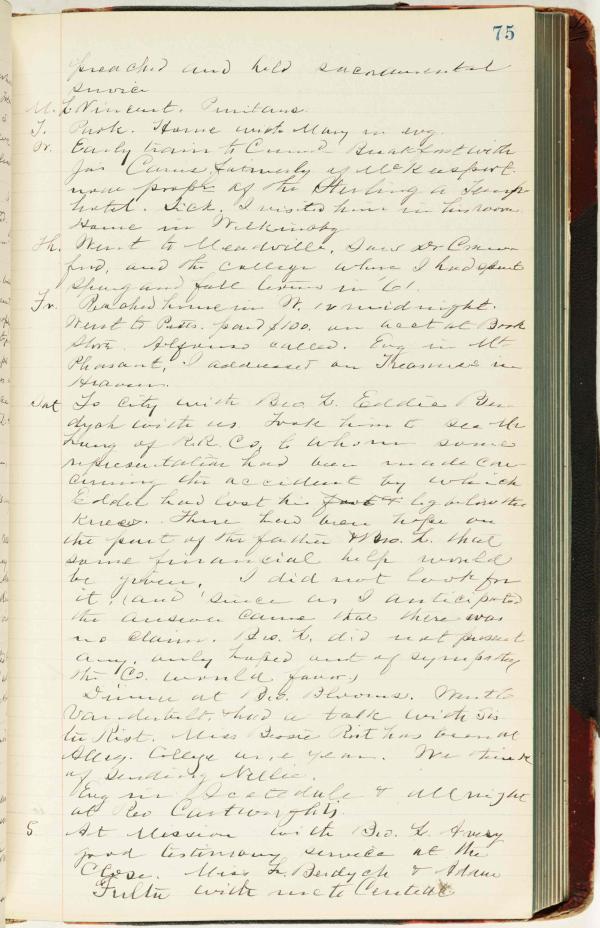 75
preached and held sacramental
service
M. L Vincent. Puritans.
T. Park. Home with Mary in evg.
W. Early train to Breakfast with
Jas formerly of McKeesport.
now propr of the Sterling a Temp
hotel. Sick. I visited him in his room
Home in Wilkinsbg
Th. Went to Meadville. Saw Dr Craw
ford, and the College where I had spent
Spring and fall terms in 61.
Fr. Reached home in W. 12 midnight.
Went to Pitts. paid $100. on acct at Book
Store. called. Evg in Mt
Pleasant, I addressed on Treasures in
Heaven.
Sat To City with Bro. L. Eddie Ber
dych with us. Took him to see Mr
of R.R. Co, to whom some
representation had been made con
cerning the accident by which
Eddie had lost his foot & leg below the
knee. There had been hope on
the part of the father & Bro. L. that
some financial help would
be given. I did not look for
it, (and since as I anticipated
the answer came that there was
no claim. Bro. L. did not present
any, only hoped out of sympathy
the Co. would favor)
Dinner at Bro. Blooms. Went to
Vanderbilt & had a talk with Sis
ter Rist. Miss Bessie Rist has been at
Alleg. College one year. We think
of sending Nellie.
Evg in Scotsdale & all night
at Rev Cartwrights.
S At Mission with Bro. L. A very
good testimony service at the
Close. Miss L. Berdych & Adam
with me to